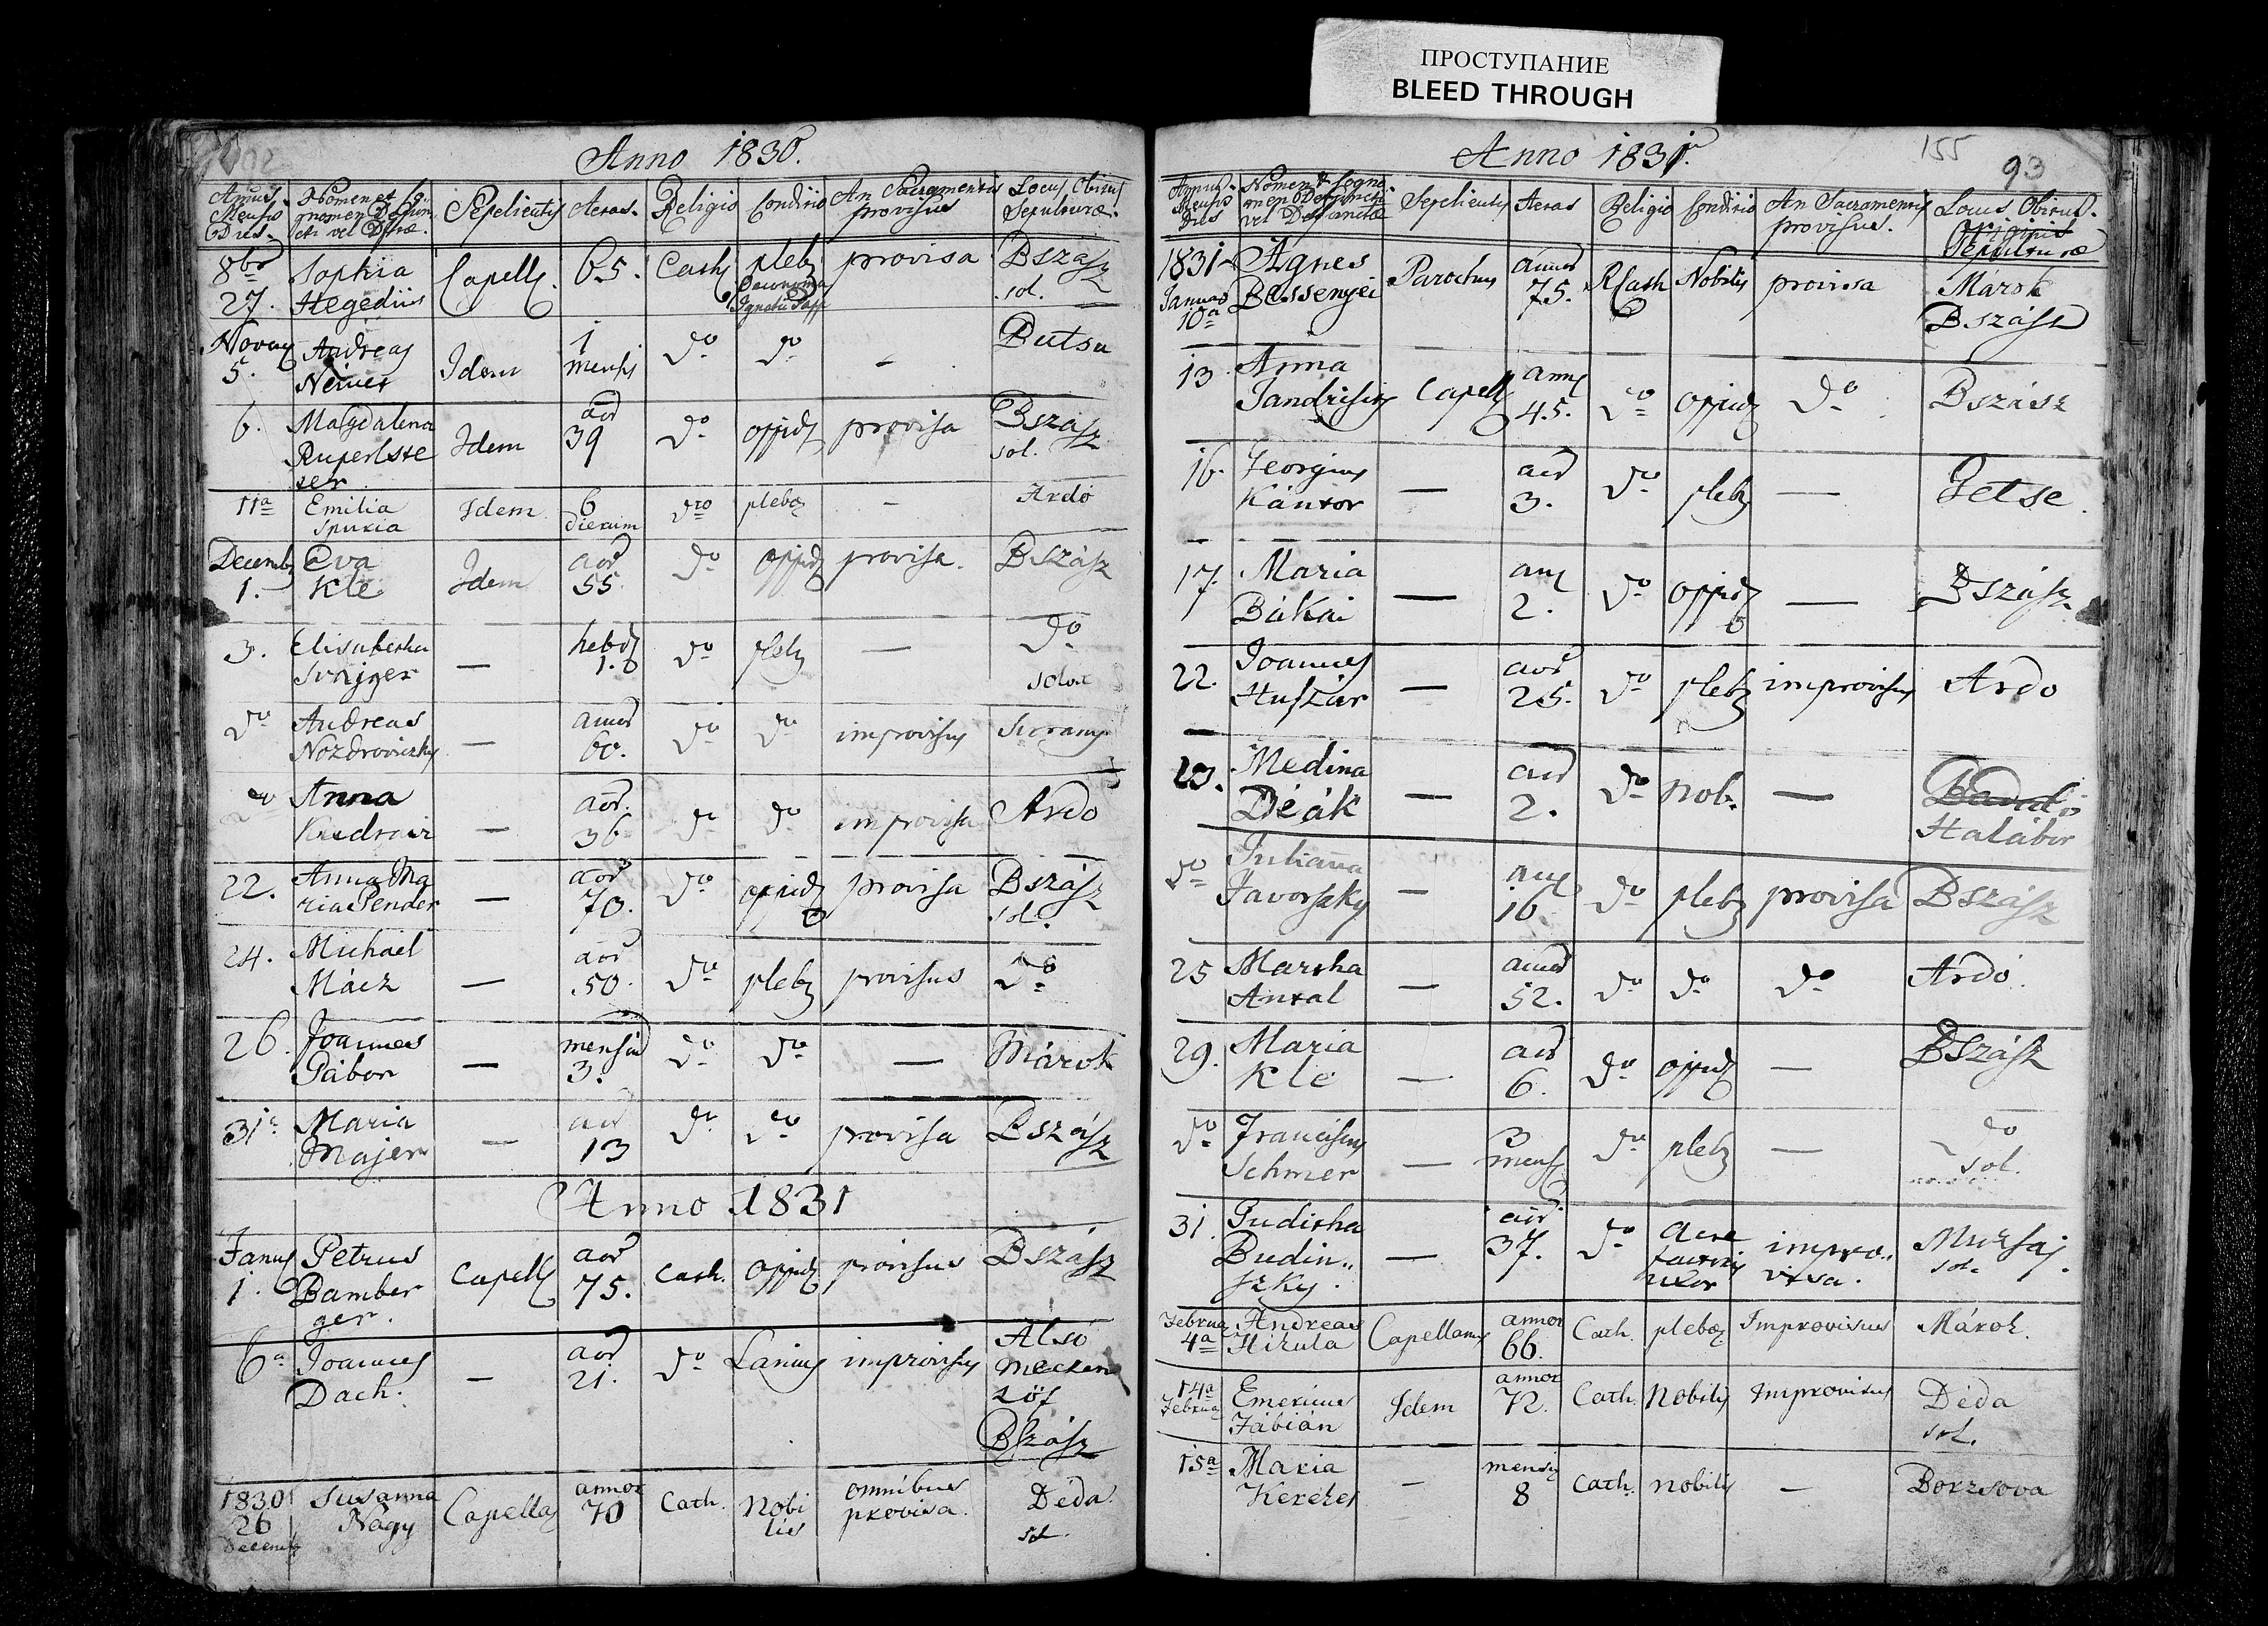 ПРОСТУПАНИЕ
BLEED THROUGH
Anno 1830.
Annus Mensis Dies. Nomen et Cognomen Defuncti vel Defтæ. Sepelientis Aetas. Religio Conditio An Sacramentis provisus Locus Obitus Sepulturæ.
8br 27. Sophia Hegedüs Capell. 65. Cath pleb Oeconoma Ignatii Papp provisa BSzász sol.
Novem 5. Andreas Németh Idem 1 mensis do do - Butsu
6. Magdalena Ruperlsteser Idem aor 39 do oppid provisa BSzász sol.
11a Emilia Spuria Idem 6 dierum dto plebæ - Ardó
Decemb 1. Eva Klé Idem aor 55 do oppid provisa. BSzász
3. Elisabetha Svajger — hebd 1. do pleb — do solvit
do Andreas Nozdroviczky — annor 60. do do improvisus Surany
do Anna Kudroviz — aor. 36 do do improvisa Ardó
22. Anna Maria Pender — aor 70. do oppid provisa BSzász sol.
24. Michael Mácz — aor 50. do pleb provisus do
26. Joannes Gábor — mensiu 3. do do — Márok
31a Maria Majer — aor 13 do do provisa BSzász
Anno 1831
Janu 1. Petrus Bamberger. Capell aor 75. Cath. oppid provisus BSzász
6a Joannes Dach. — aor 21. do Lanius improvisus Alsó Meczenzöf BSzász
1830 26 Decemb Susanna Nagy Capella annor 70 Cath. Nobilis omnibus provisa. Déda. sol.
Anno 1831.
155
93
Annus Mensis Dies Nomen & Cognomen Defuncti vel Defunctæ Sepelientis Aetas Religio Conditio An Sacramentis provisus. Locus Obitus. Sepulturæ
1831 Januar 10a Agnes Bessenyei Parochus annor 75. RCath Nobilis provisa Márok BSzász
13 Anna Jandrisits Capell ann 45. do oppid do BSzász
16. Georgius Kántor — aor 3. do pleb — Getse.
17. Maria Bákai — ann 2. do oppid — BSzász
22. Joannes Huszár — aor 25. do pleb improvisus Ardo
23. Medina Deák — aor 2. do nob. — Halábor
do Juliana Javorszky — ann 16. do pleb provisa BSzász
25 Martha Antal — annor 52. do do do Ardó.
29. Maria Klé — aor 6. do oppid — BSzász
do Franciscus Schmer — 3 mens do pleb — do sol.
31. Juditha Budinszky. — aor 37. do uxor improvisa. Muzsaj. sol.
Februa 4a Andreas Hizula Capellanus annor 66. Cath. plebæ Improvisus Márok.
14a Februa Emericus Fábián Idem annor 72. Cath. Nobilis Improvisus Déda sol.
15a Maria Kerekes — mensis 8 Cath. nobilis — Borzsova